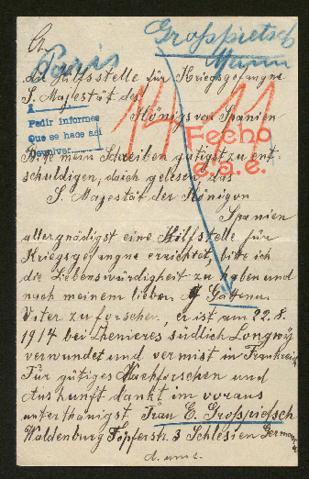 An
Paris
Grosspietsch
Mann
die Hilfsstelle für Kriegsgefangne
S. Majestät des
Königs von Spanien
14 11
Pedir informes
Que es hace así
Devolver
Fecho
e.a.e.
Bitte mein Schreiben gütigst zu ent
schuldigen, da ich gelesen, das
S. Majestät der Königon
Spanien
allergnädigst eine Hilfstelle für
Kriegsgefangne errichtet, bitte ich
die Lebenswürdigheit zu haben und
nach meinem lieben Gatten u.
Vater zu forschen, er ist am 22.8.
1914 bei südlich Longwy
verwundet und vermist in Frankreich
Für gütiges Nachforschen und
Auskunft dankt im voraus
unterthänigst Frau E. Grosspietsch
Waldenburg Töpferstr. 3 Schlesien Germania